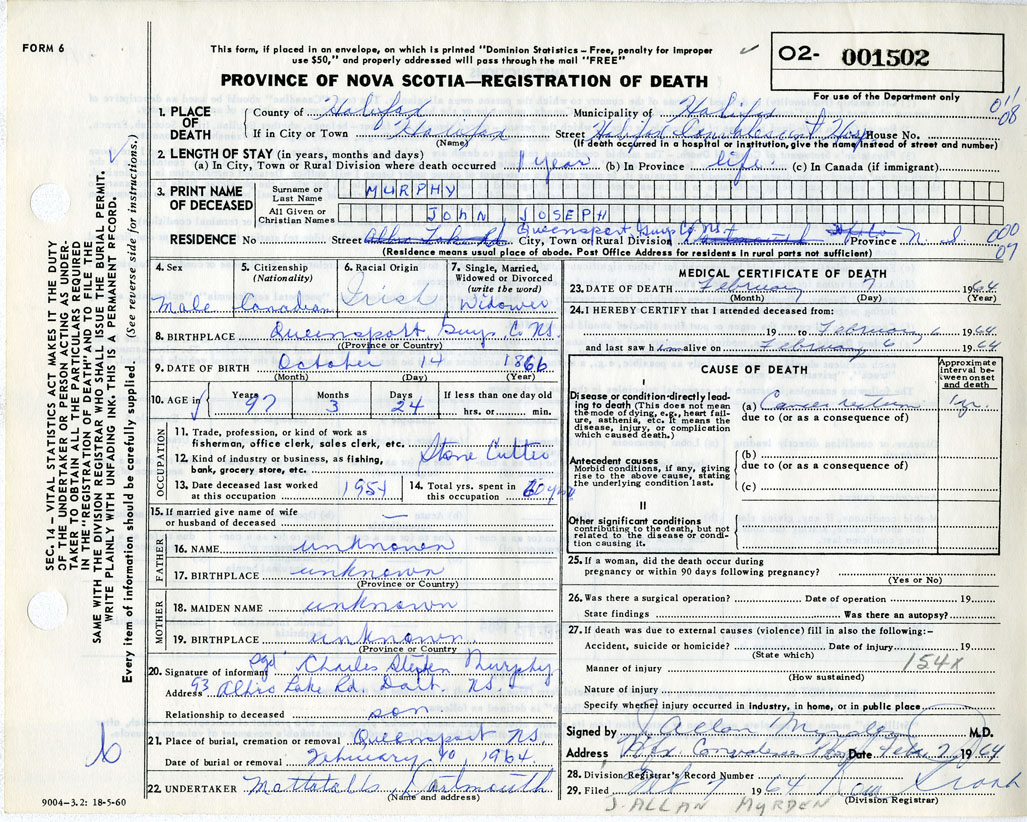 FORM 6
This form, if placed in an envelope, on which is printed "Dominion Statistics – Free, penalty for improper
use $50," and properly addressed will pass through the mail "FREE"
PROVINCE OF NOVA SCOTIA—REGISTRATION OF DEATH
O2- 001502
For use of the Department only
011
08
1. PLACE OF DEATH
County of Halifax Municipality of Halifax
If in City or Town Halifax Street Halifax Convalescent Hosp House No.
(Name) (If death occurred in a hospital or institution, give the name instead of street and number)
2. LENGTH OF STAY (in years, months and days)
(a) In City, Town or Rural Division where death occurred 1 year (b) In Province life. (c) In Canada (if immigrant)
3. PRINT NAME OF DECEASED
Surname or Last Name MURPHY
All Given or Christian Names JOHN JOSEPH
Queensport Guys Co NS.
RESIDENCE No Street Albro Lake Rd City, Town or Rural Division Dartmouth Province N.S 000
07
(Residence means usual place of abode. Post Office Address for residents in rural parts not sufficient)
4. Sex Male
5. Citizenship (Nationality) Canadian
6. Racial Origin Irish
7. Single, Married, Widowed or Divorced (write the word) Widower
8. BIRTHPLACE Queensport, Guys. C. NS.
(Province or Country)
9. DATE OF BIRTH October 14 1866
(Month) (Day) (Year)
10. AGE in Years 97 Months 3 Days 24 If less than one day old
hrs. or min.
OCCUPATION
11. Trade, profession, or kind of work as
fisherman, office clerk, sales clerk, etc.
12. Kind of industry or business, as fishing,
bank, grocery store, etc.
Stone Cutter
13. Date deceased last worked
at this occupation 1954
14. Total yrs. spent in
this occupation 60 yrs
15. If married give name of wife
or husband of deceased —
FATHER
16. NAME unknown
17. BIRTHPLACE unknown
(Province or Country)
MOTHER
18. MAIDEN NAME unknown
19. BIRTHPLACE unknown
(Province or Country)
20. Signature of informant sgd Charles Stephen Murphy
Address 93 Albro Lake Rd. Dart. NS.
Relationship to deceased son
21. Place of burial, cremation or removal Queensport NS.
Date of burial or removal February 10, 1964.
22. UNDERTAKER Mattatalls, Dartmouth
(Name and address)
MEDICAL CERTIFICATE OF DEATH
23. DATE OF DEATH February 7 1964
(Month) (Day) (Year)
24. I HEREBY CERTIFY that I attended deceased from:
19 to February 6 1964
and last saw him alive on February 6 1964
CAUSE OF DEATH
Approximate interval between onset and death
I
Disease or condition directly leading to death (This does not mean the mode of dying, e.g., heart failure, asthenia, etc. It means the disease, injury, or complication which caused death.)
(a) Cancer rectum 1 yr.
due to (or as a consequence of)
Antecedent causes
Morbid conditions, if any, giving rise to the above cause, stating the underlying condition last.
(b)
due to (or as a consequence of)
(c)
II
Other significant conditions
contributing to the death, but not related to the disease or condition causing it.
25. If a woman, did the death occur during
pregnancy or within 90 days following pregnancy?
(Yes or No)
26. Was there a surgical operation? Date of operation 19
State findings Was there an autopsy?
27. If death was due to external causes (violence) fill in also the following:–
Accident, suicide or homicide? Date of injury 19
(State which)
Manner of injury 154X
(How sustained)
Nature of injury
Specify whether injury occurred in industry, in home, or in public place
Signed by J. Allan Myrden M.D.
Address Hfx. Convalescent Hosp Date Feb 7 1964
28. Division Registrar's Record Number
29. Filed Feb 7 1964
(Division Registrar)
J. ALLAN MYRDEN
9004–3.2: 18-5-60
SEC. 14 – VITAL STATISTICS ACT MAKES IT THE DUTY
OF THE UNDERTAKER OR PERSON ACTING AS UNDERTAKER
TO OBTAIN ALL THE PARTICULARS REQUIRED
IN THE "REGISTRATION OF DEATH" AND TO FILE THE
SAME WITH THE DIVISION REGISTRAR WHO SHALL ISSUE THE BURIAL PERMIT.
WRITE PLAINLY WITH UNFADING INK. THIS IS A PERMANENT RECORD.
Every item of information should be carefully supplied. (See reverse side for instructions.)